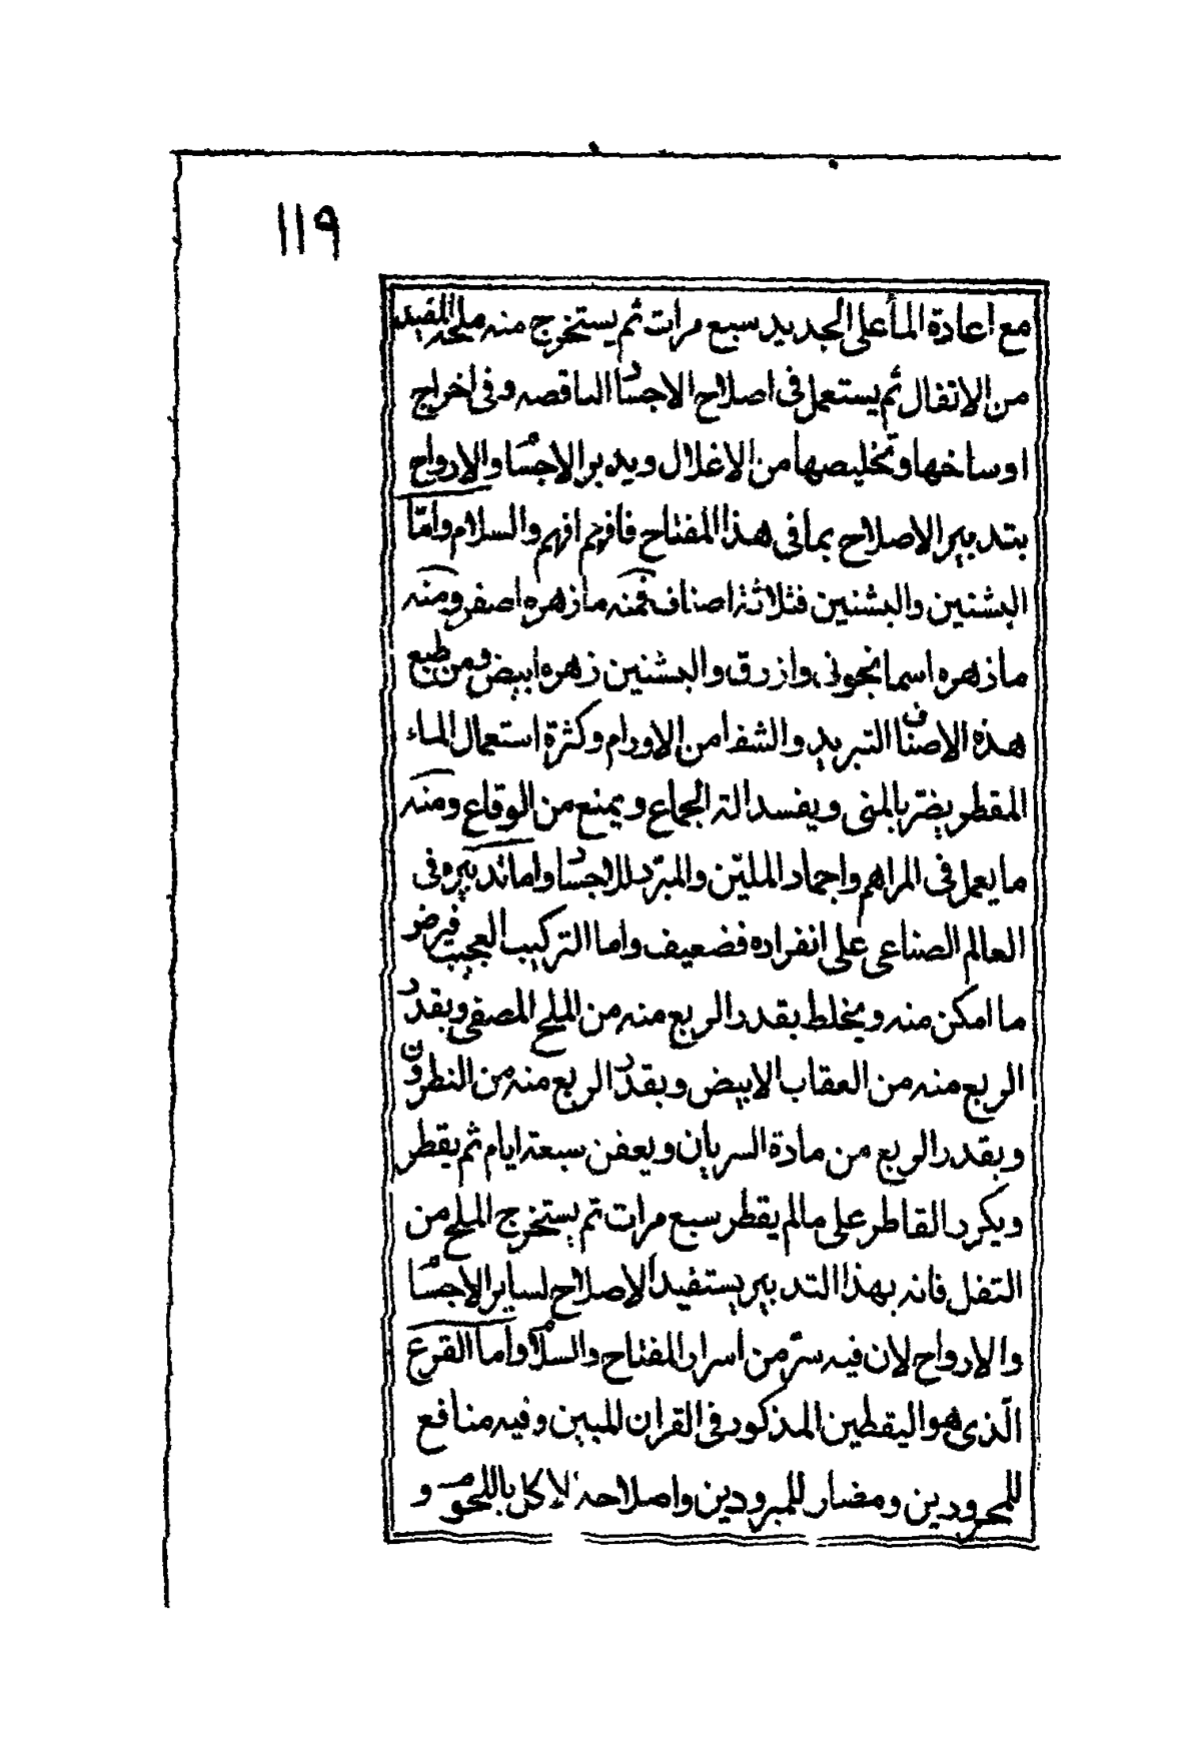 ١١٩
مع اعادة المأ على الجديد سبع مرات ثم يستخرج منه ملحه المفيد
من الاتفال ثم يستعمل فى اصلاح الاجساد الناقصه وفى اخراج
اوساخها وتخليصها من الاغلال ويدبر الاجسام والارواح
بتدبير الاصلاح بما فى هذا المفتاح فافهم افهم والسلام وامّا
البشنين والبشنين فثلاثة اصناف فمنه ما زهره اصفر ومنه
ما زهره اسمانجونى وازرق والبشنين زهره ابيض ومن طبع
هذه الاصناف التبريد والشفا من الاورام وكثرة استعمال الماء
المقطر يضرّ بالمنى ويفسد الة الجماع ويمنع من الوقاع ومنه
ما يعمل فى المراهم واجماد المليّن والمبرّد للاجساد واما تدبيره فى
العالم الصناعى على انفراده فضعيف واما التركيب العجيب فيرض
ما امكن منه ويخلط بقدر الربع منه من الملح المصفى وبقدر
الربع منه من العقاب الابيض وبقدر الربع منه من النطرون
وبقدر الربع من مادة السريان ويعفن سبعة ايام ثم يقطر
ويكرر القاطر على مالم يقطر سبع مرات ثم يستخرج الملح من
التفل فانه بهذا التدبير يستفيد الاصلاح لساير الاجسام
والارواح لان فيه سرّ من اسرار المفتاح والسلام واما القرع
الّذى هو اليقطين المذكور فى القران المبين وفيه منافع
للمحرورين ومضار للمبرودين واصلاحه لاكل باللحوم و